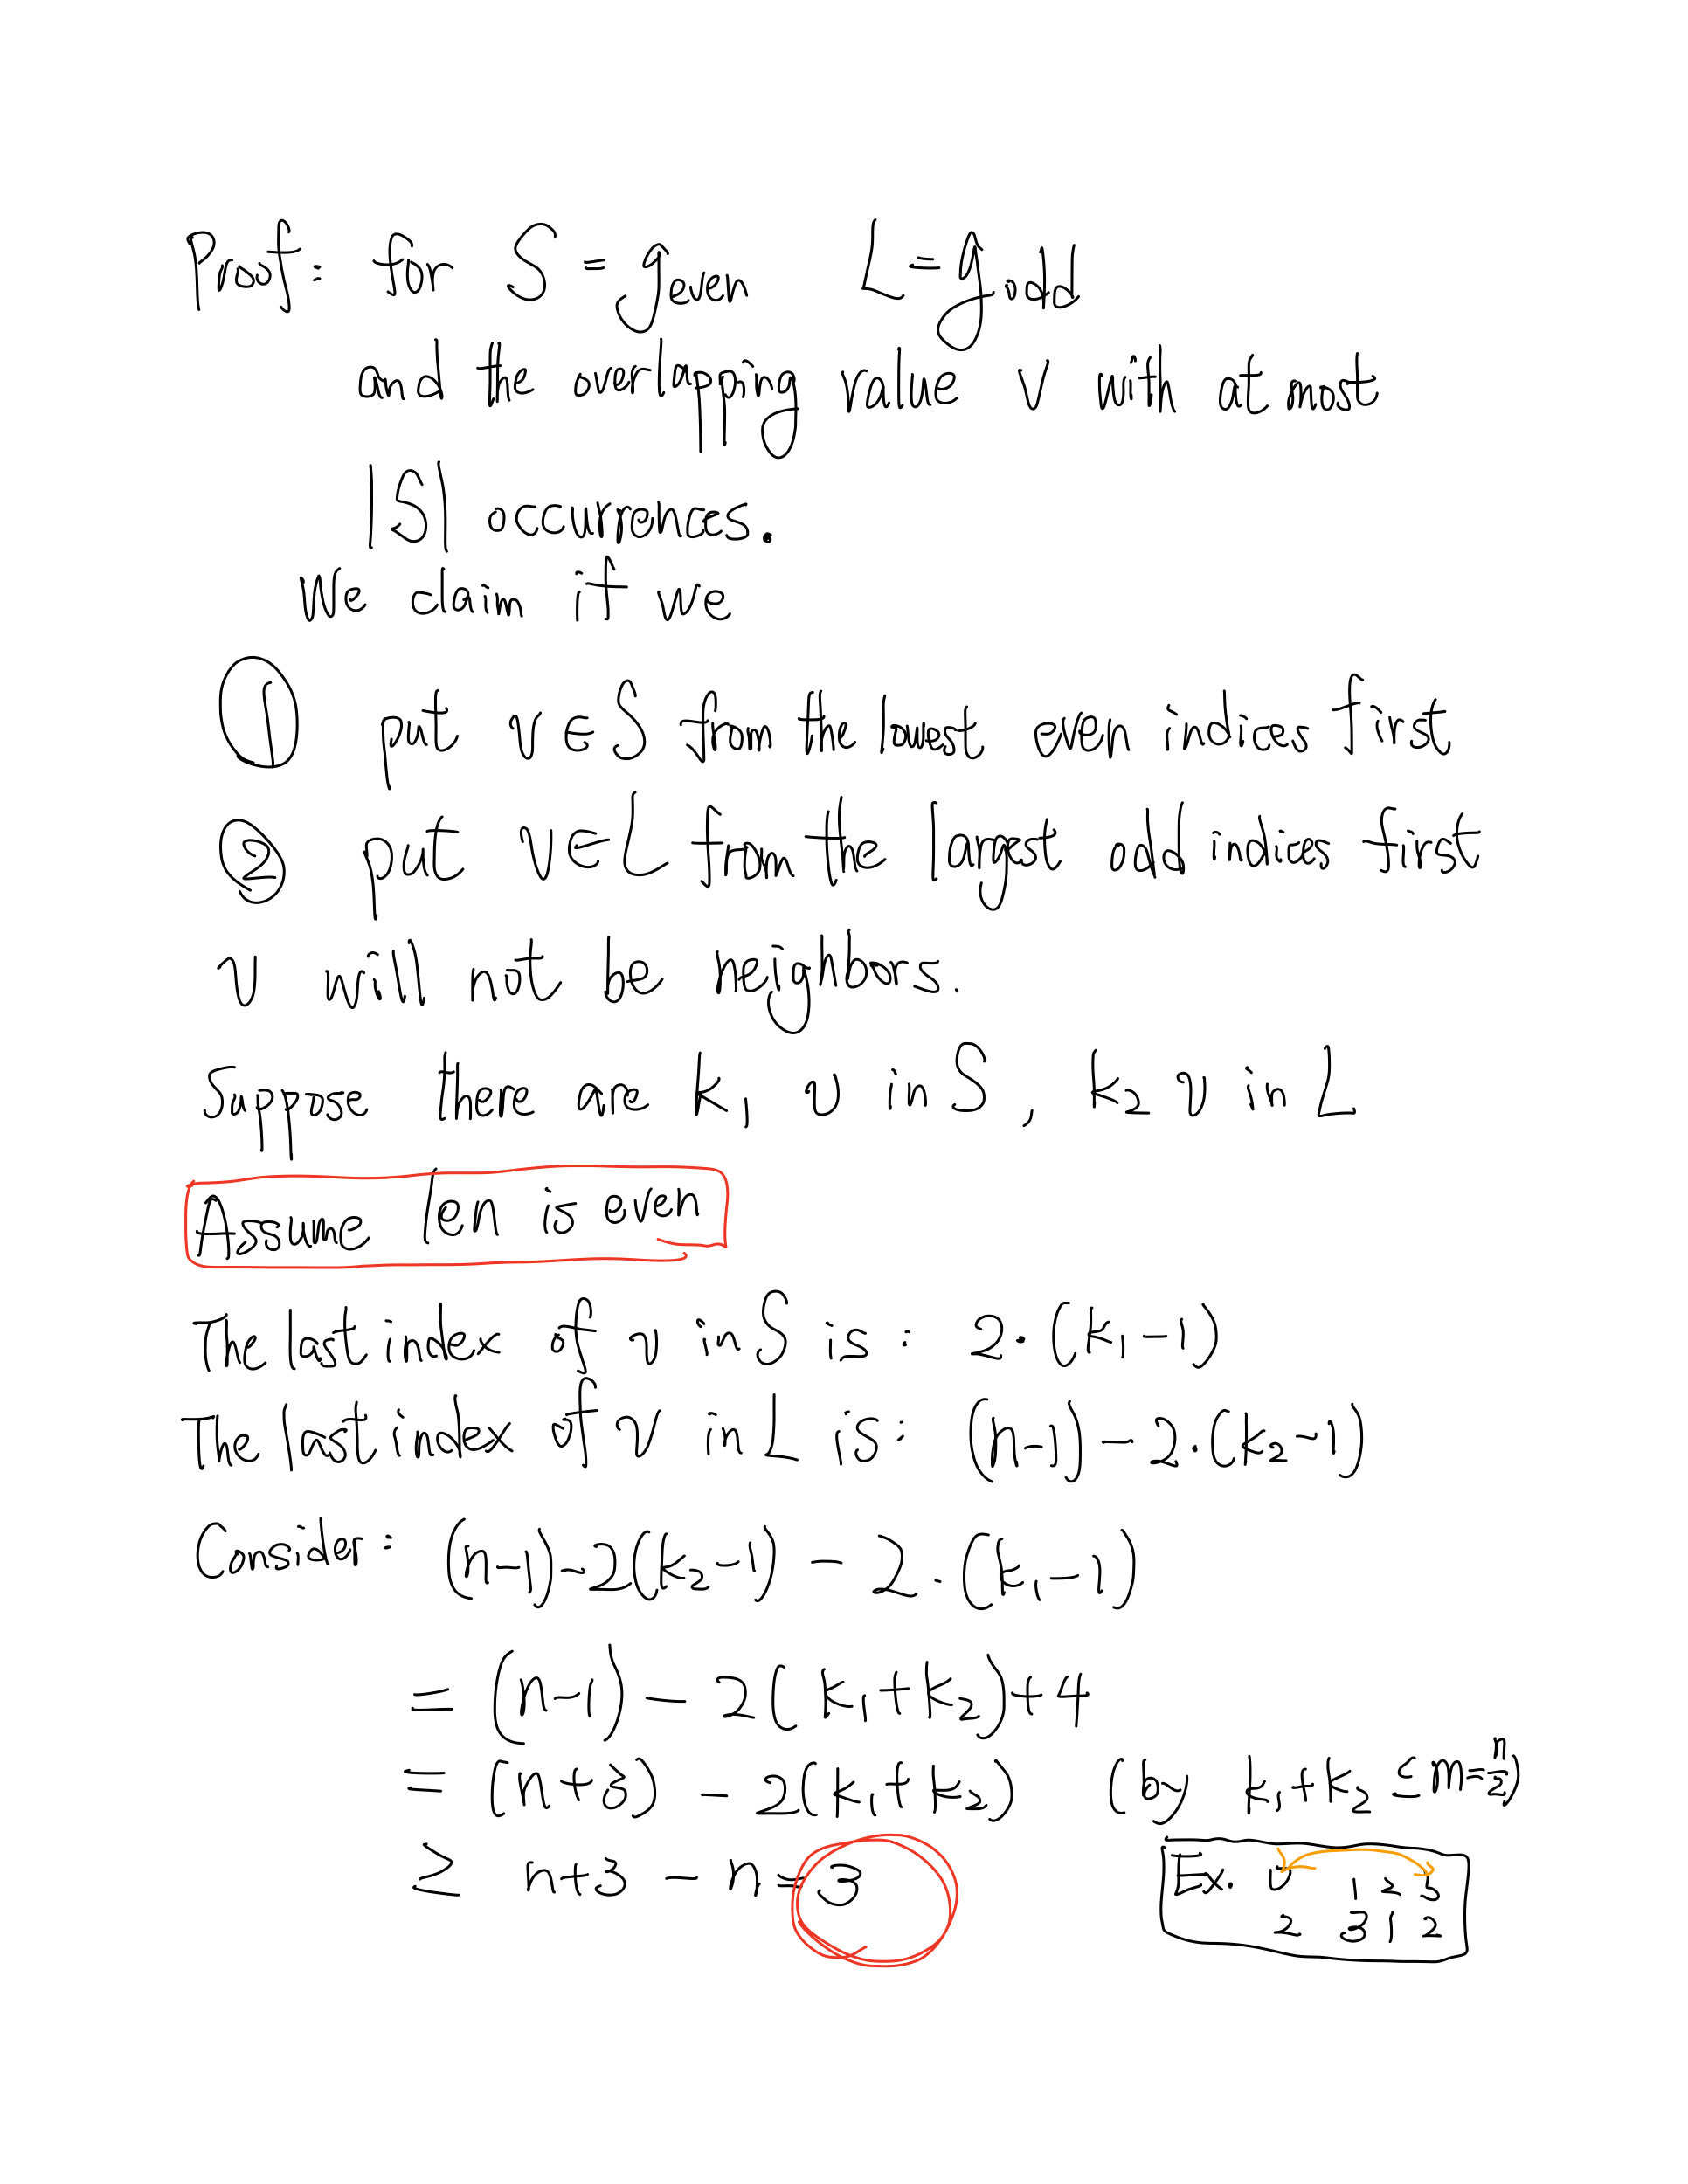 Proof: for S = g_even L = g_odd
and the overlapping value v with at most
|S| occurrences.
We claim if we
① put v ∈ S from the lowest even indices first
② put v ∈ L from the largest odd indices first
v will not be neighbors.
Suppose there are k₁ v in S, k₂ v in L
Assume len is even
The last index of v in S is: 2·(k₁-1)
The last index of v in L is: (n-1)-2·(k₂-1)
Consider: (n-1)-2(k₂-1)-2·(k₁-1)
= (n-1) - 2(k₁+k₂)+4
= (n+3) - 2(k₁+k₂) (by k₁+k₂ ≤ m=n/2)
≥ n+3-n=3
Ex. 0 1 2 3
2 3 1 2